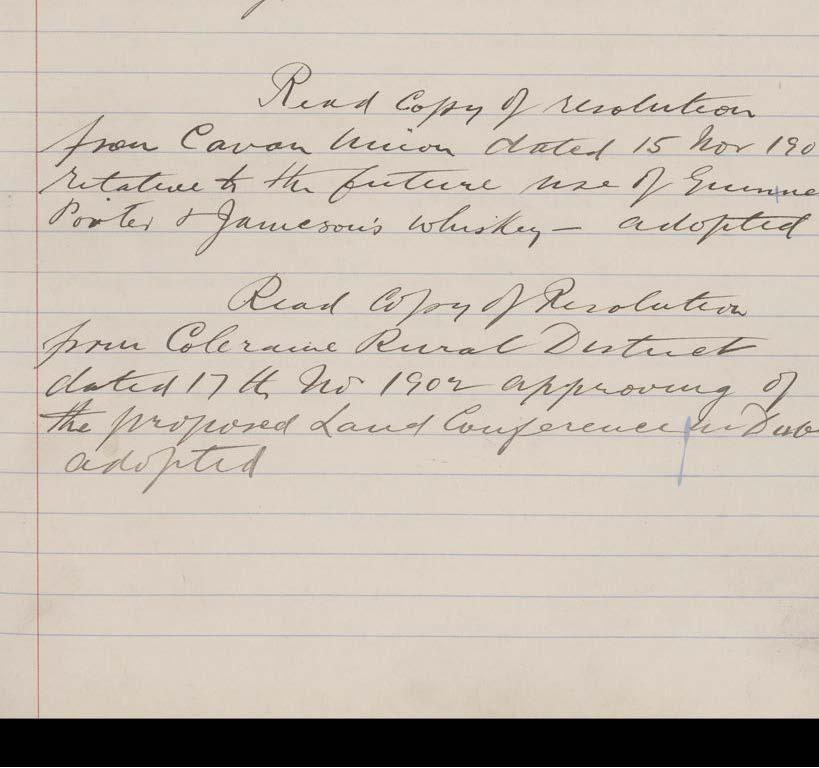 Read Copy of resolution
from Cavan Union dated 15 Nov 190
relative to the future use of Guinne
Porter & Jameson's Whiskey — adopted
Read Copy of Resolution
from Coleraine Rural District
dated 17th Nov 1902 approving of
the proposed Land Conference in Dub
adopted